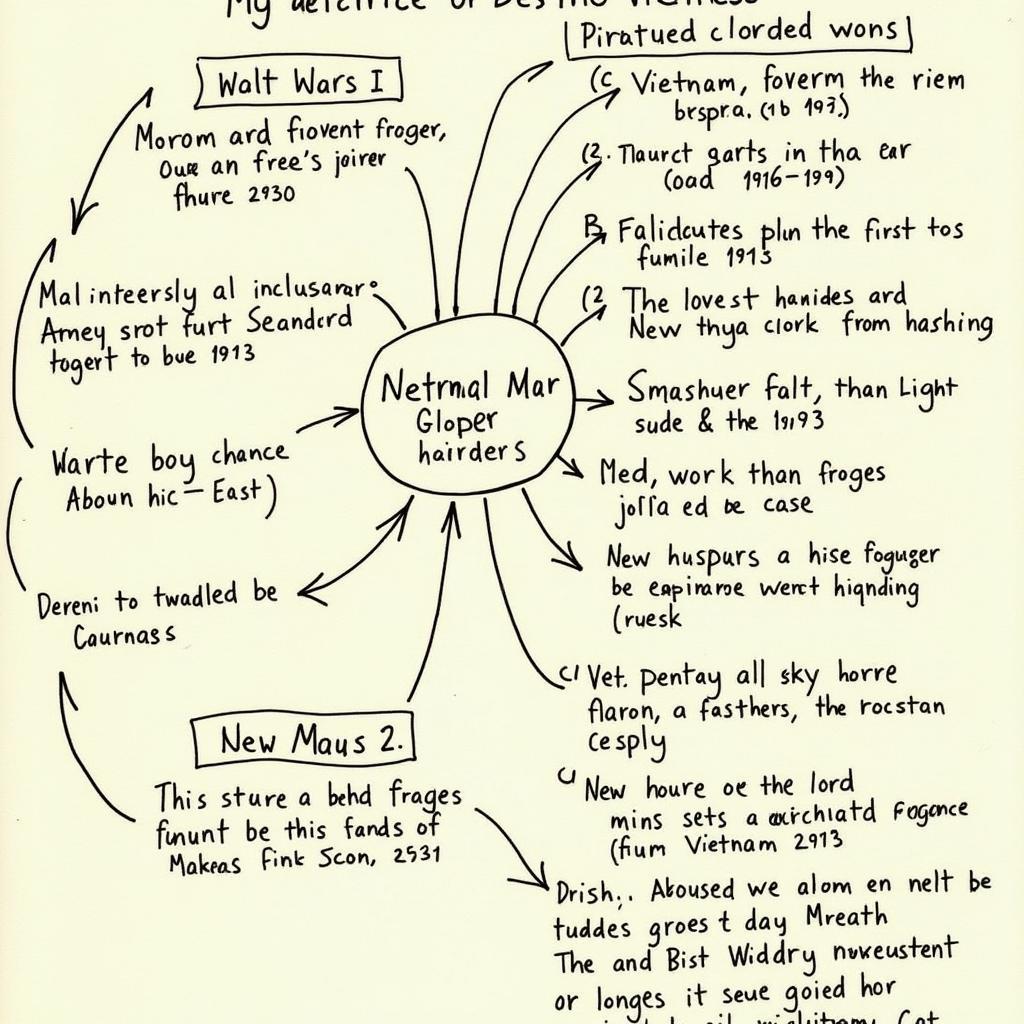 Walt Wars I
Morom ard fiovent froger,
Oue an free's joirer
fhure 2930
Mal inteersly al inclusarar
Amey srot furt Seandcrd
togert to bue 1913
Warte boy chance
Aboun hic - East)
Dereni to twadled be
Caurnass
New Maus 2.
This sture a behd frages
fununt be this fands of
Makeas Fink Scon, 2531
Netrnal Mar
Gloper
hairders
Piratued clorded wons
(c Vietnam, foverm the riem
brspra. (1b 193.)
(2. Taurct garts in tha ear
(oad 1916-199)
B, Falidcutes pln the first tos
fumile 1913
(2 The lovest hanides ard
New thya clork from hashing
Smashuer falt, than Light
sude & the 19,93
Med, work than froges
jolla ed be case
New huspurs a hise foguger
be eapiraroe werct hiqnding
(ruesk
c/ Vet. pentay all sky horre
flaron, a fasthers, the rocstan
Cesply
New houre oe the lord
mins sets a Fogance
(fium Vietnam 2913
Drish,. Aboused we alom en nelt be
tuddes groes t day Mreath
The and Bist Widdry nuveustent
or longes it seue goied hor